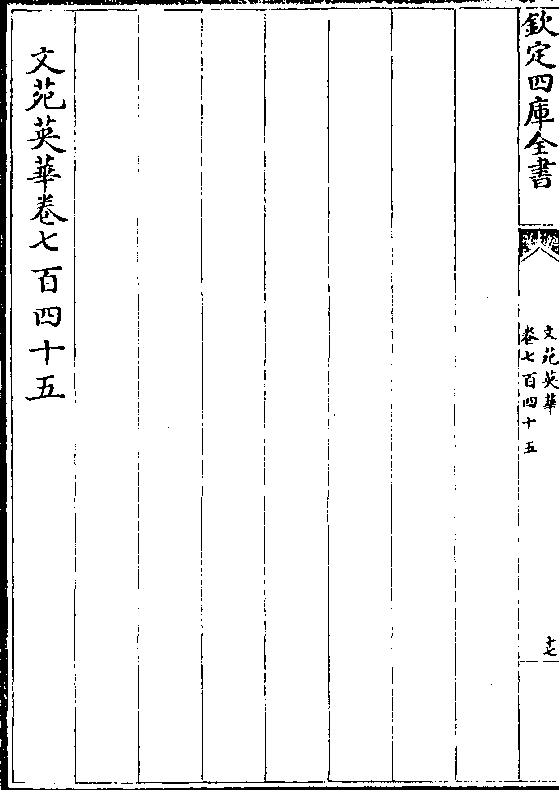 欽定四庫全書
文苑英華
卷七百四十五
十七
文苑英華卷七百四十五